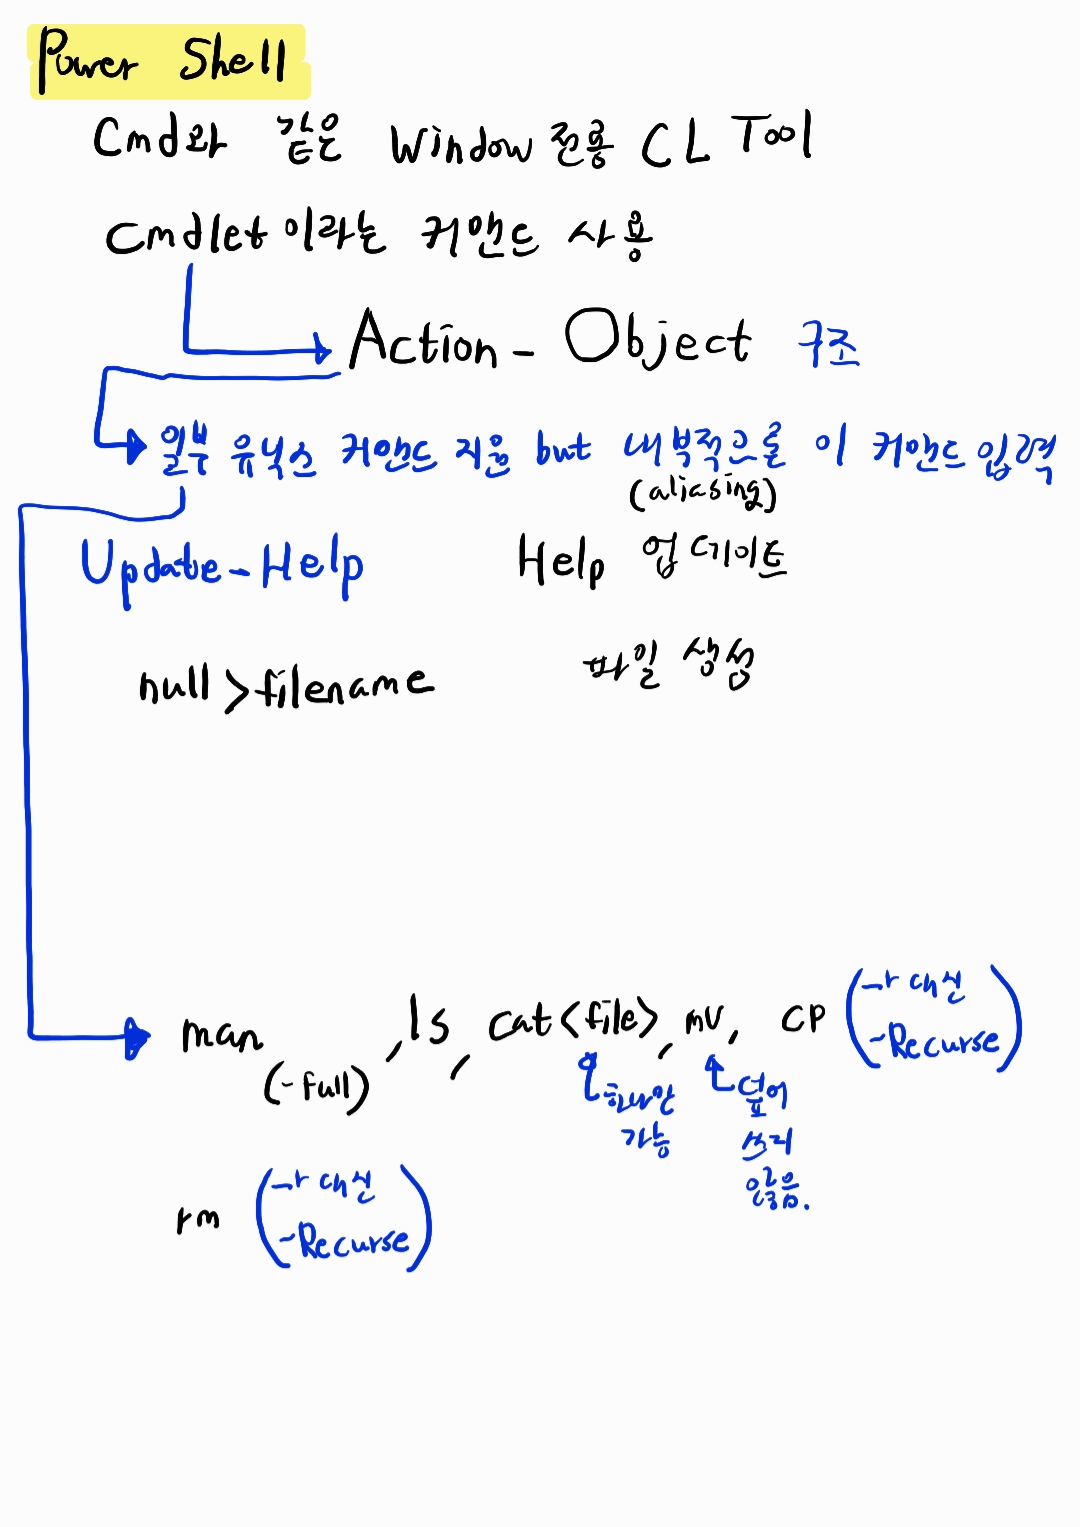 Power Shell
Cmd와 같은 Window 전용 CL Tool
Cmdlet 이라는 커맨드 사용
Action - Object 구조
일부 유닉스 커맨드 지원 but 내부적으로 이 커맨드 입력
(aliasing)
Update-Help Help 업데이트
null>filename 파일 생성
man, ls, cat<file>, mv, cp (-r 대신
-Recurse)
(-full)
하나만 가능
덮어 쓰지 않음.
rm (-r 대신
-Recurse)